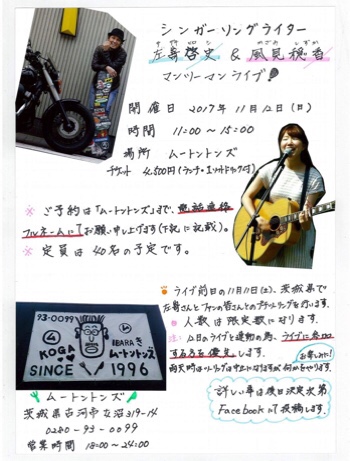 シンガーソングライター
啓史 & 風見穂香
マンツーマンライブ
開催日 2017年11月12日(日)
時間 11:00〜15:00
場所 ムートントンズ
チケット 4,500円(ランチ・1ソフトドリンク付)
※ ご予約は「ムートントンズ」まで、
フルネームにてお願い申し上げます(下記に記載)。
※ 定員は40名の予定です。
93-0099
KOGA
IBARAき
ムートントンズ
SINCE 1996
ムートントンズ
茨城県古河市
0280-93-0099
営業時間 18:00〜24:00
ライブ前日の11月11日(土)、茨城県で
さんとファンの皆さんとのプチツーリングを行います。
人数は限定数になります。
注: 12日のライブと連動の為、ライブに参加
する方を優先します。
お楽しみに!
雨天時はツーリングは中止になりますが何かをやります。
詳しい事は後日決定次第
Facebookにて投稿します。